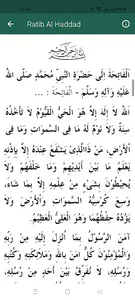 Ratib Al Haddad
بِسْمِ اللهِ الرَّحْمٰنِ الرَّحِيْمِ
اَلْفَاتِحَةَ إِلَى حَضْرَةِ النَّبِيِّ مُحَمَّدٍ صَلَّى اللهُ
عَلَيْهِ وَآلِهِ وَسَلَّمَ - اَلْفَاتِحَةَ :
اَللهُ لَا إِلَهَ إِلَّا هُوَ الْحَيُّ الْقَيُّوْمُ لَا تَأْخُذُهُ
سِنَةٌ وَلَا نَوْمٌ لَهُ مَا فِى السَّمَوَاتِ وَمَا فِى
الْأَرْضِ، مَنْ ذَاالَّذِيْ يَشْفَعُ عِنْدَهُ إِلَّا بِإِذْنِهِ
يَعْلَمُ مَا بَيْنَ أَيْدِيْهِمْ وَمَا خَلْفَهُمْ وَلَا
يُحِيْطُوْنَ بِشَيْءٍ مِنْ عِلْمِهِ إِلَّا بِمَا شَاءَ،
وَسِعَ كُرْسِيُّهُ السَّمَوَاتِ وَالْأَرْضَ، وَلَا
يَؤُدُهُ حِفْظُهُمَا وَهُوَ الْعَلِيُّ الْعَظِيْمُ.
آمَنَ الرَّسُوْلُ بِمَا أُنْزِلَ إِلَيْهِ مِنْ رَبِّهِ
وَالْمُؤْمِنُوْنَ كُلٌّ آمَنَ بِاللهِ وَمَلَائِكَتِهِ وَكُتُبِهِ
وَرُسُلِهِ، لَا نُفَرِّقُ بَيْنَ أَحَدٍ مِنْ رُسُلِهِ،